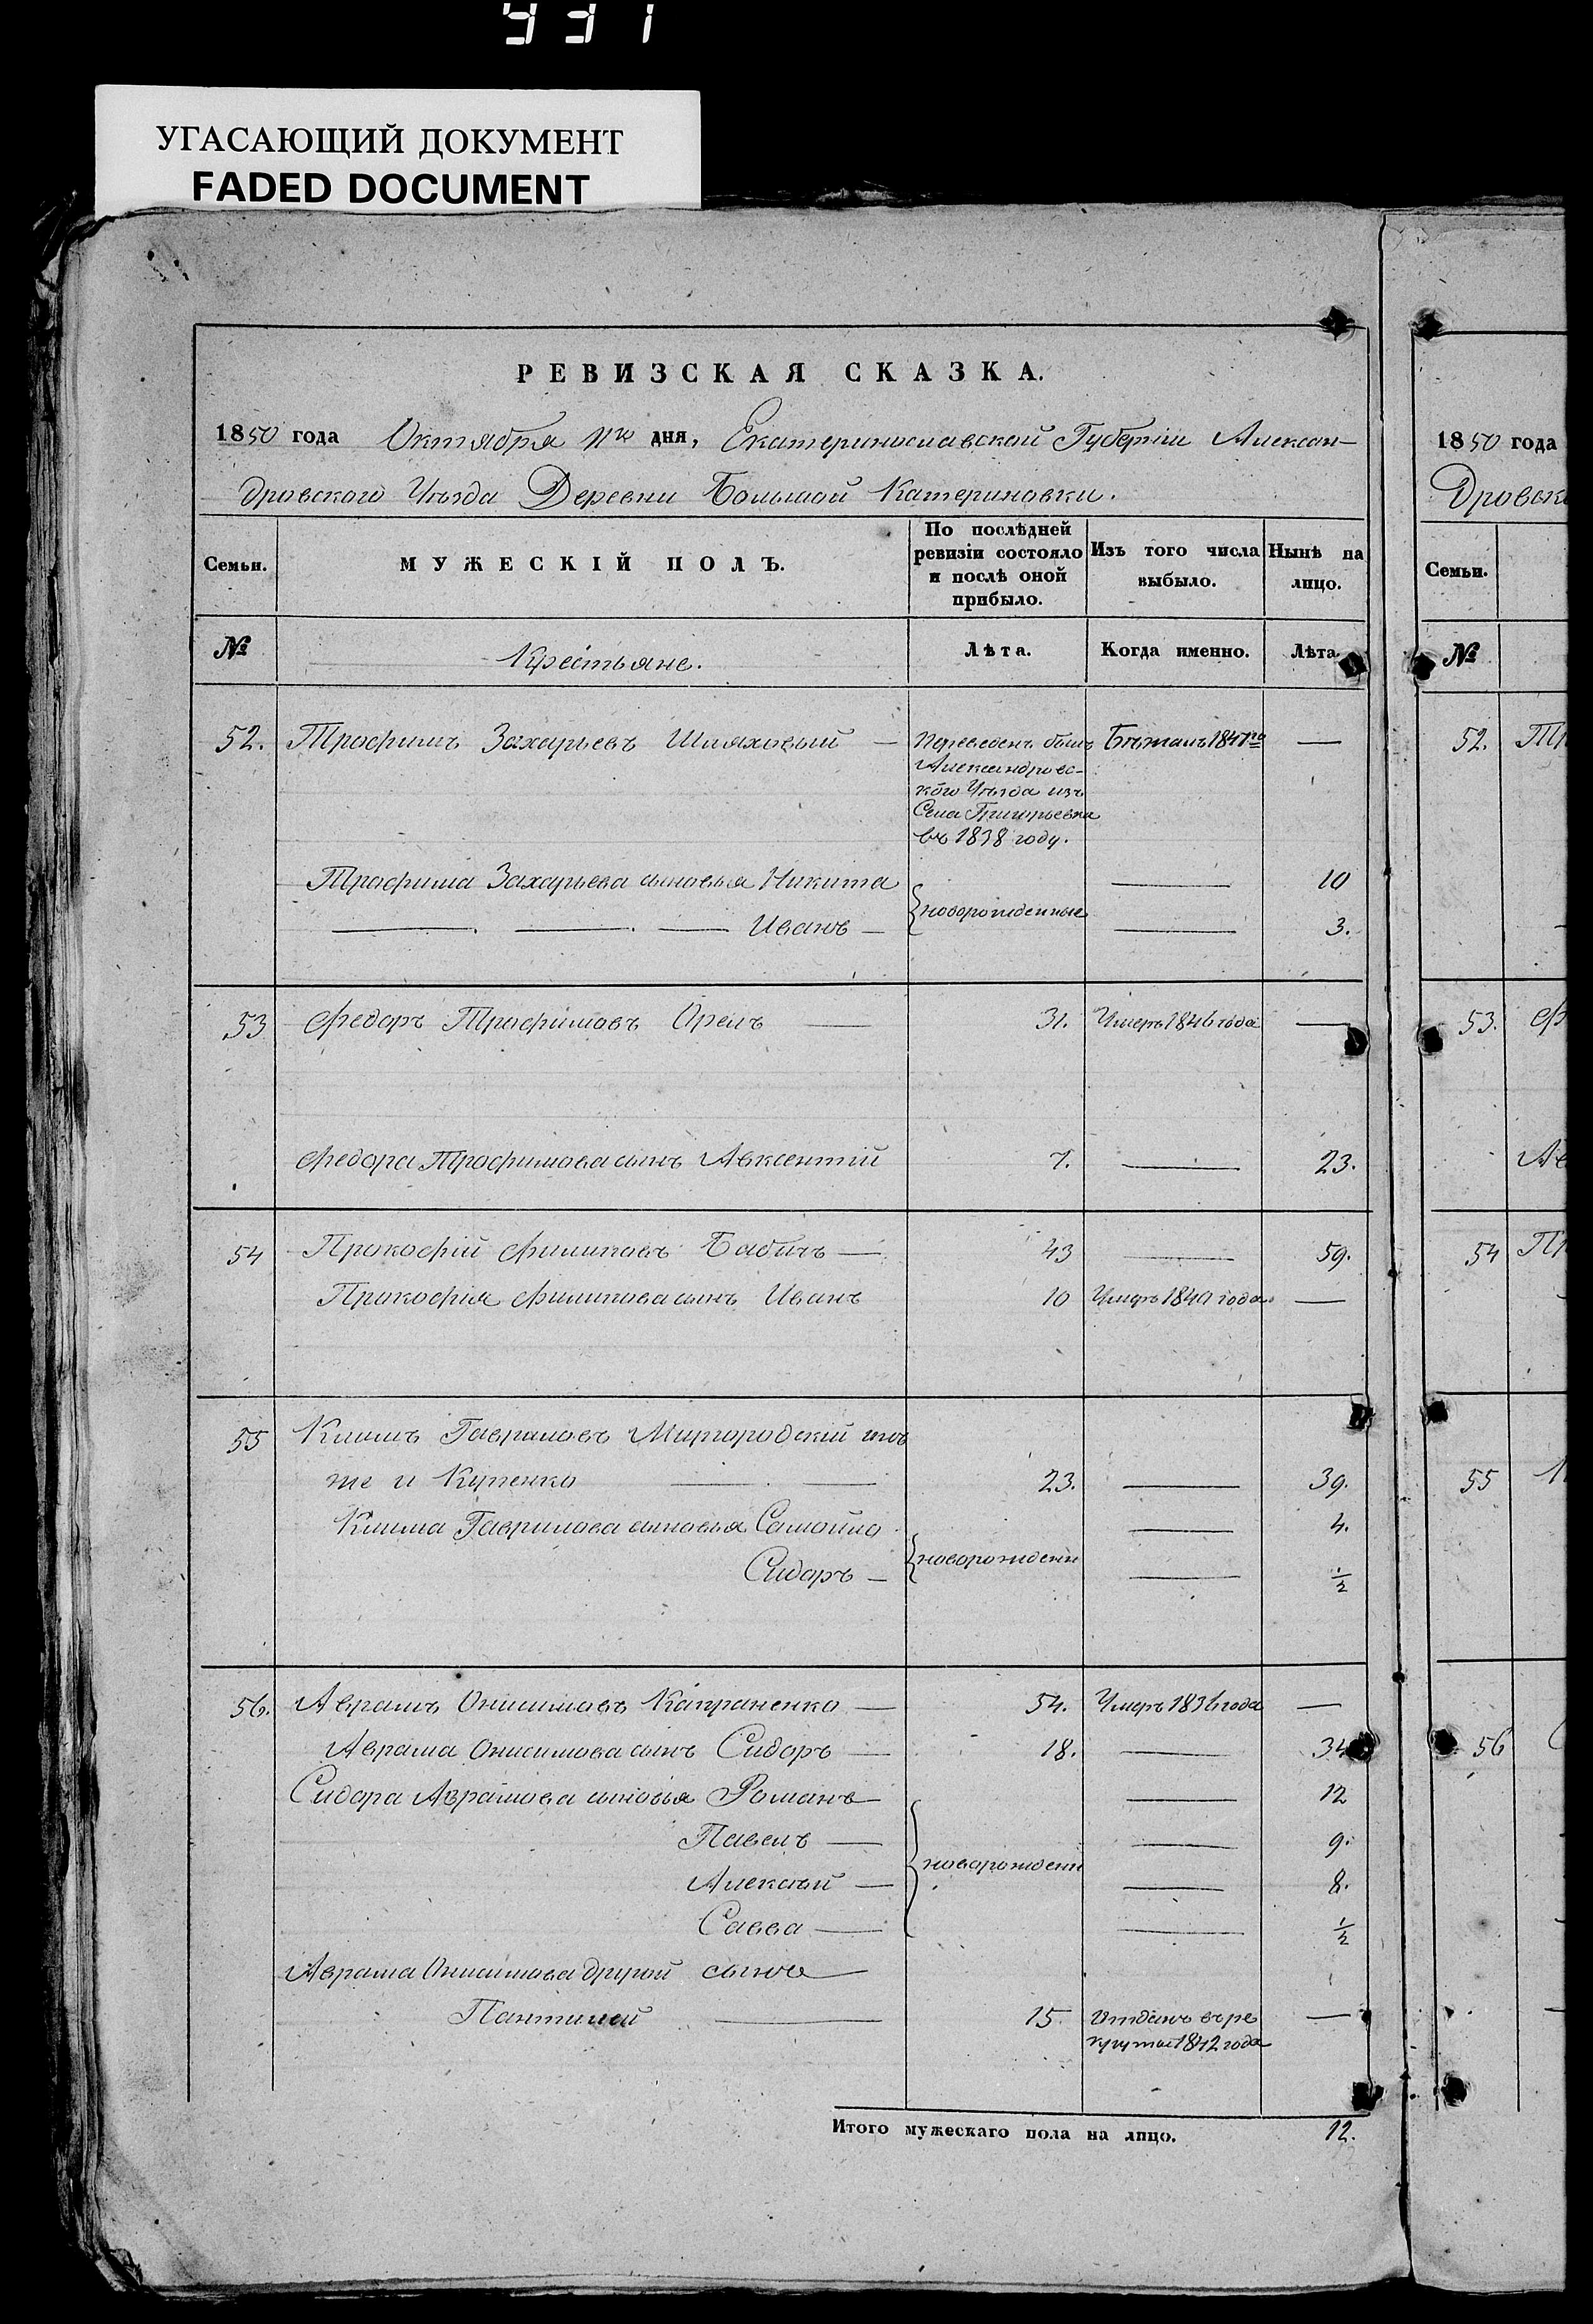 931
УГАСАЮЩИЙ ДОКУМЕНТ
FADED DOCUMENT
РЕВИЗСКАЯ СКАЗКА.
1850 года Октября дня, Екатеринославской Губернiи Алексан-
дровского Уѣзда Деревни Большой Катериновки.
Семьи. МУЖЕСКІЙ ПОЛЪ. По послѣдней ревизіи состояло и послѣ оной прибыло. Изъ того числа выбыло. Нынѣ на лицо.
№ Крестьяне. Лѣта. Когда именно. Лѣта.
52. Трофимъ Захарьевъ Шляховый — Переведенъ былъ Бѣжалъ 1847го —
Александровс-
кого Уѣзда изъ
Села Григорьевка
въ 1838 году.
Трофима Захарьева сыновья Никита — 10
{новорожденные
Иванъ — — 3.
53 Федоръ Трофимовъ Орелъ — 31. Умеръ 1846 года —
Федора Трофимова сынъ Авксентій 7. — 23.
54 Прокофій Филиповъ Бабичъ — 43 — 59.
Прокофія Филипова сынъ Иванъ 10 Умеръ 1840 года. —
55 Климъ Гавриловъ Миргородскій онъ
же и Купенко — 23. — 39.
Клима Гаврилова сыновья Самойло — 4.
{новорожденн
Сидоръ — — ½
56. Аврамъ Онисимовъ Капраненко — 54. Умеръ 1836 года —
Аврама Онисимова сынъ Сидоръ — 18. — 34
Сидора Аврамова сыновья Романъ — — 12
Павелъ — — 9.
{новорожденн
Алексѣй — — 8.
Савва — — ½
Аврама Онисимова другой сынъ —
Пантилей — 15. Отданъ въ ре —
круты 1842 года
Итого мужескаго пола на лицо. 12.
1850 года
Дровск
Семьи.
№
52. Тр
53. Ф
Ав
54 Пр
55
56